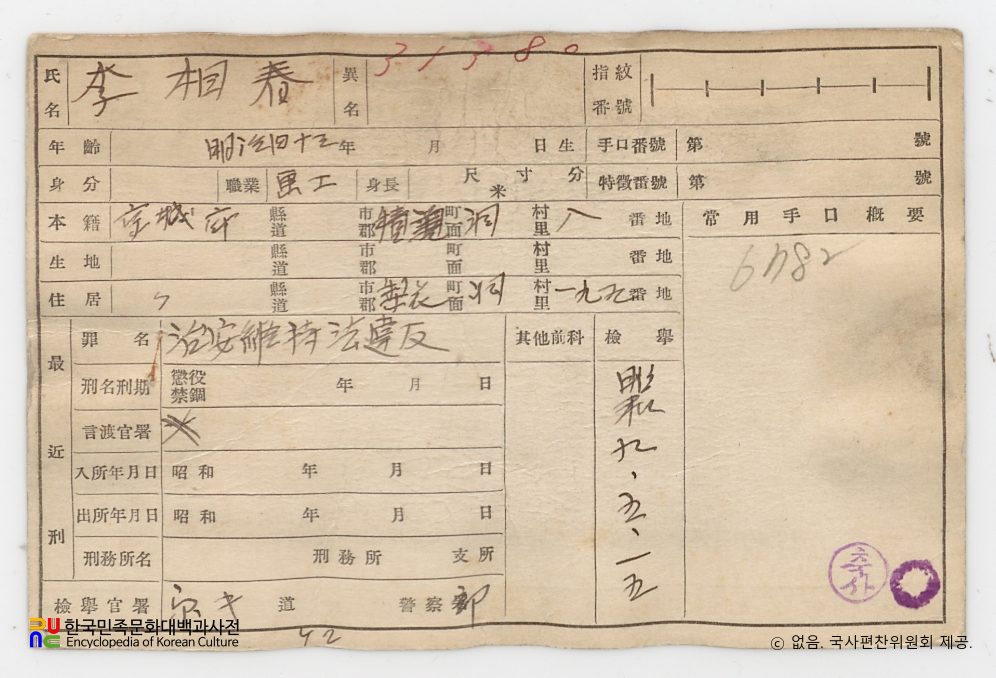 31380
氏名 李相春 異名 指紋番號
年齡 明治四十三年 月 日生 手口番號 第 號
身分 職業 身長 尺寸分 米 特徵番號 第 號
本籍 京城府 縣道 市郡 町面 洞 村里 八 番地 常用手口概要
生地 縣道 市郡 町面 村里 番地
住居 〃 縣道 市郡 梨花 町面 洞 村里 一九五 番地
6782
最近刑
罪名 治安維持法違反 其他前科 檢擧
刑名刑期 懲役 禁錮 年 月 日
昭和九、五、一五
言渡官署
入所年月日 昭和 年 月 日
出所年月日 昭和 年 月 日
刑務所名 刑務所 支所
檢擧官署 京キ 道 警察 部
촬사
42
한국민족문화대백과사전
Encyclopedia of Korean Culture
ⓒ 없음. 국사편찬위원회 제공.